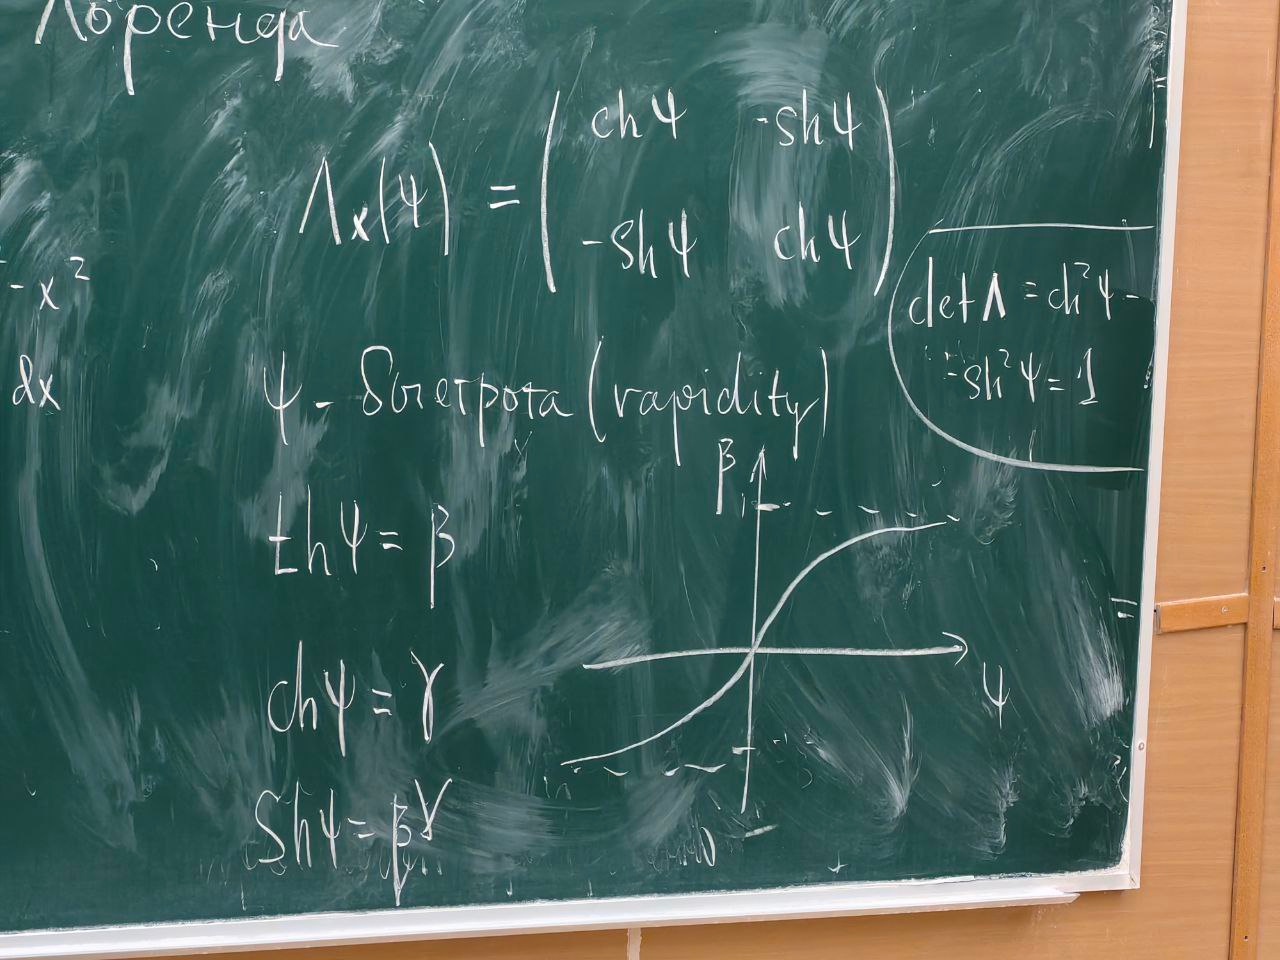 Лоренца
Λx(ψ) = ( chψ -shψ
-shψ chψ )
- x²
dx
det Λ = ch²ψ -
- sh²ψ = 1
ψ - быстрота (rapidity)
thψ = β
chψ = γ
shψ = βγ
β
1
ψ